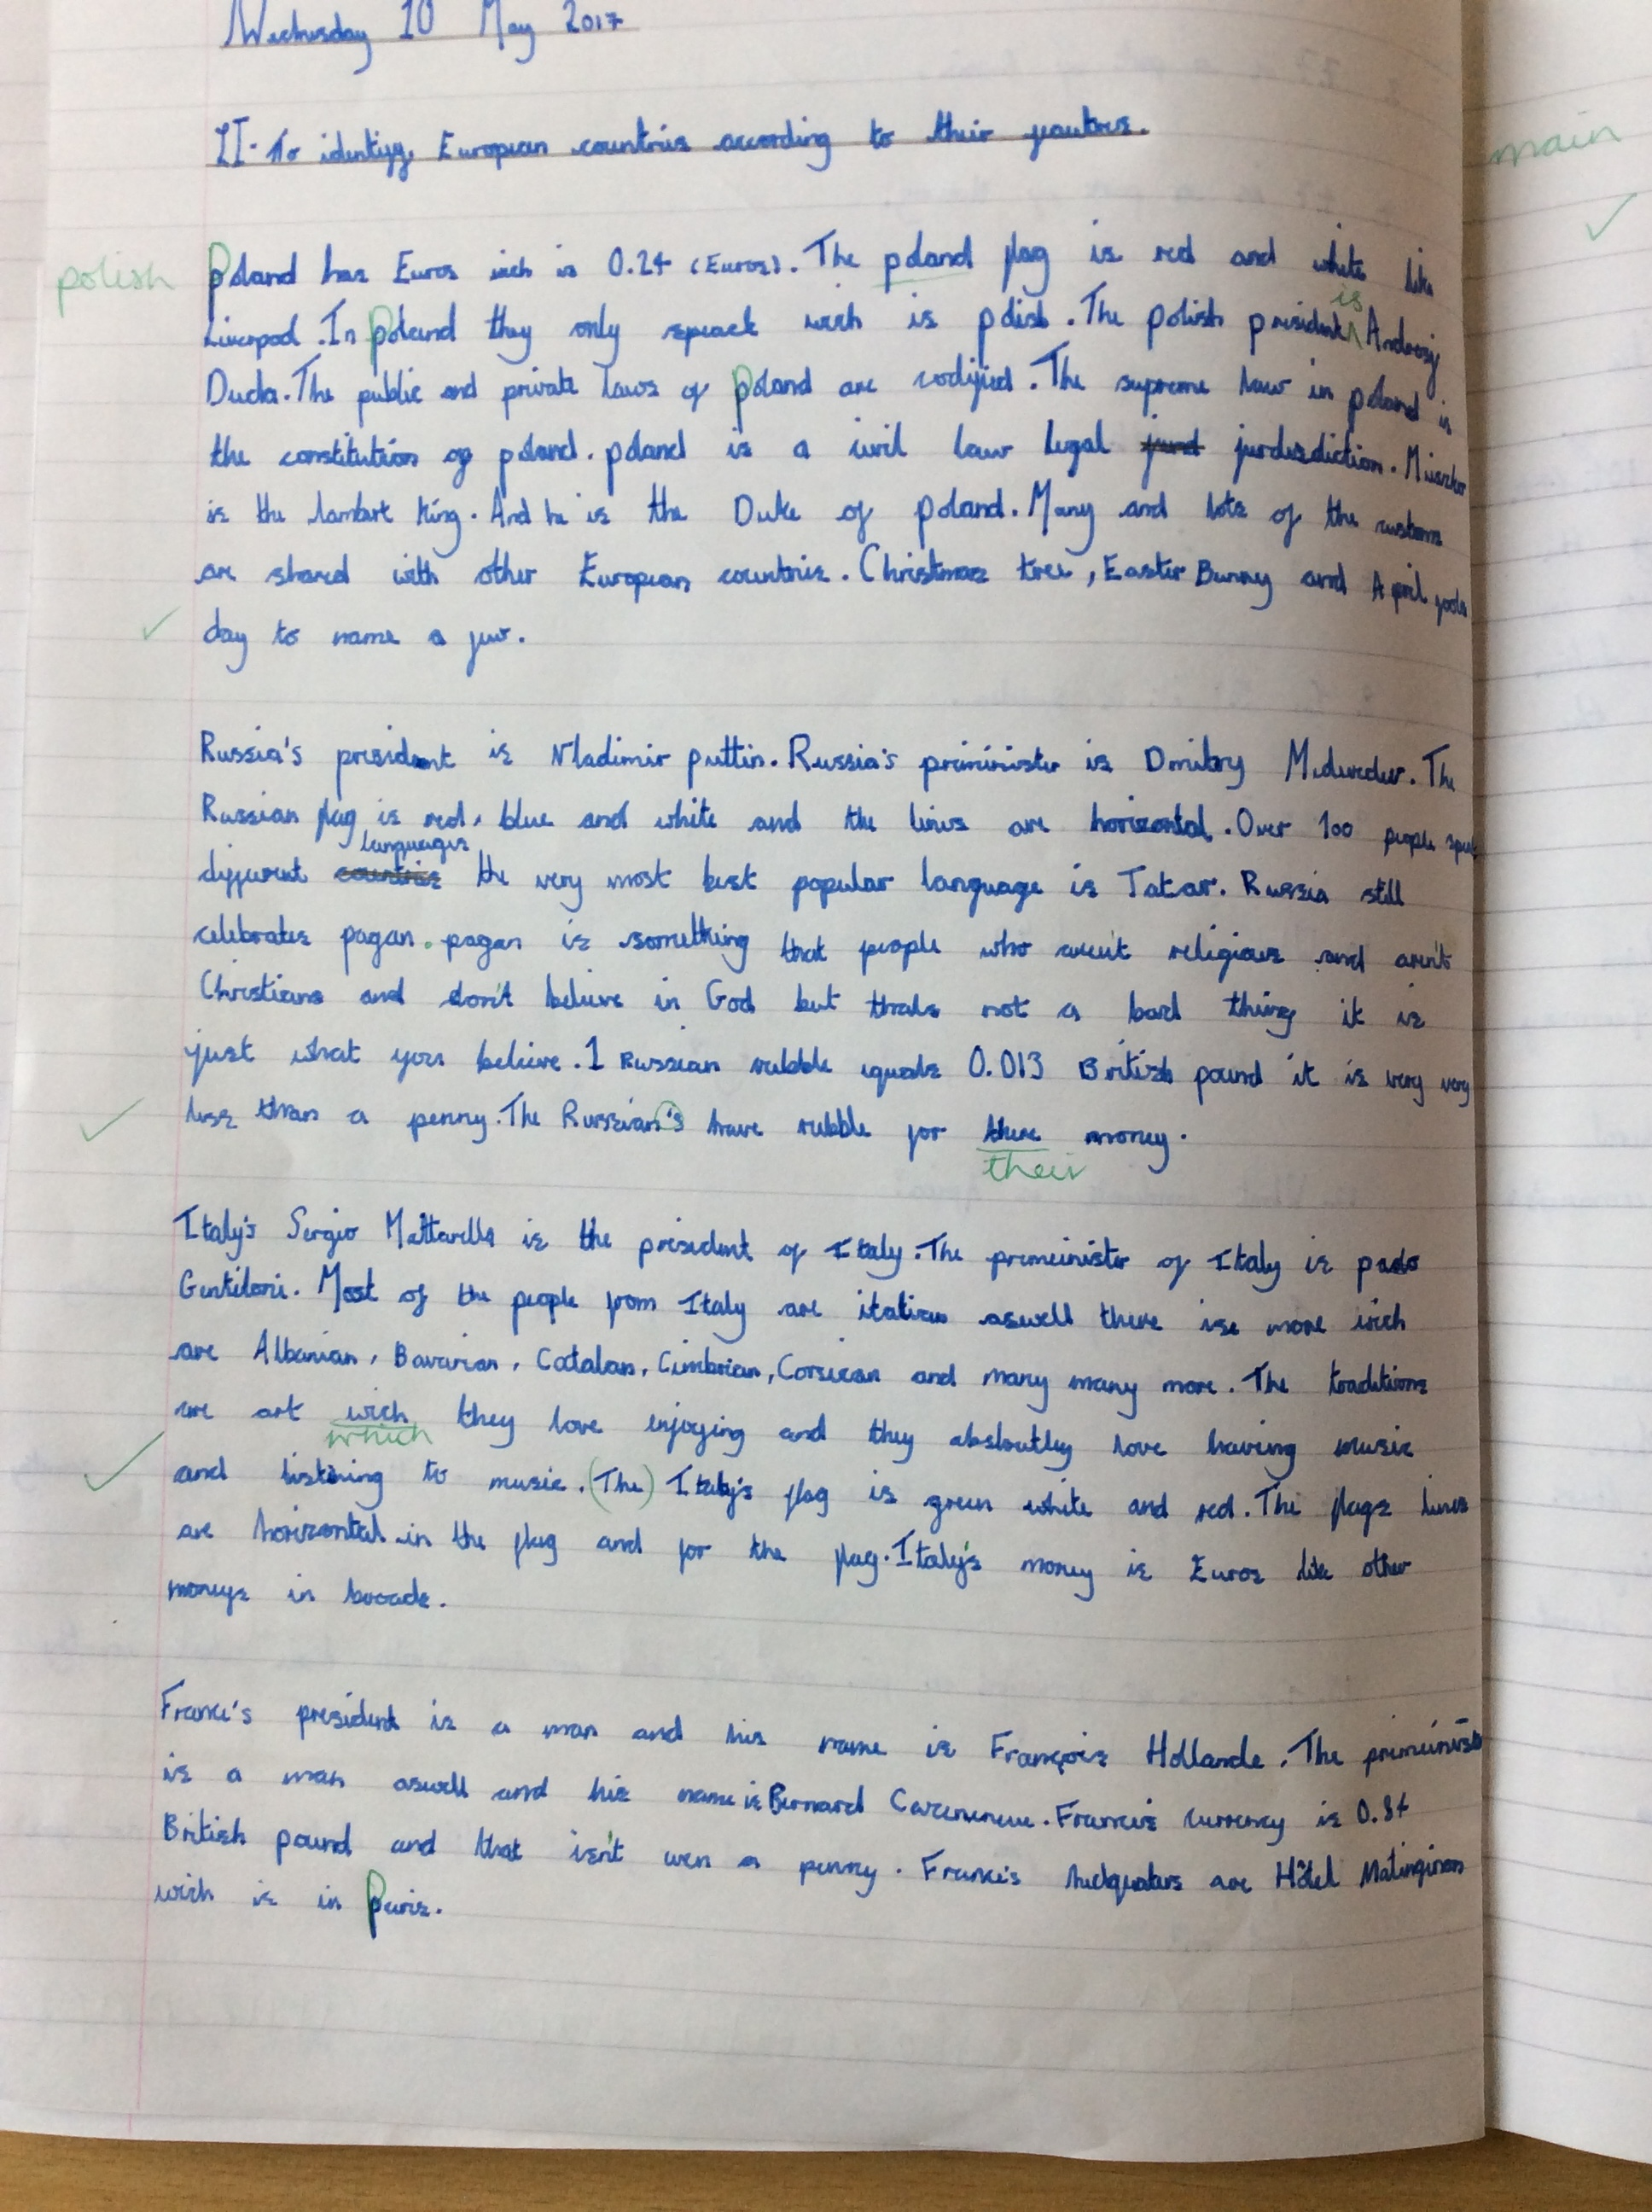 Wednesday 10 May 2017
LI- To identify European countries according to their feautres.
main
polish
Poland has Euros wich is 0.24 (Euros). The poland flag is red and white like
Liverpool. In Poland they only speack wich is polish. The polish president is Andrezj
Duda. The public and private laws of Poland are codified. The supreme law in poland is
the constitution of poland. poland is a civil law legal jurdisdiction.
is the lambert King. And he is the Duke of poland. Many and lots of the customs
are shared with other European countries. Christmas tree, Easter Bunny and April fools
day to name a few.
Russia's president is Vladimir puttin. Russia's priminister is Dmitry Medvedev. The
Russian flag is red, blue and white and the lines are horizontal. Over 100 people speak
different countries languages the very most best popular language is Tatar. Russia still
celebrates pagan. pagan is something that people who aren't religious and aren't
Christians and don't believe in God but thats not a bad thing it is
just what you believe. 1 Russian rubble equals 0.013 British pound it is very very
less than a penny. The Russian's have rubble for there money.
their
Italy's Sergio Mattarella is the president of Italy. The premeinister of Italy is paolo
Gentiloni. Most of the people from Italy are italian aswell there ise more wich
are Albanian, Bavarian, Catalan, Cimbrian, Corsican and many many more. The traditions
are art wich they love enjoying and they absloutley love having music
which
and listening to music. (The) Italy's flag is green white and red. The flags lines
are horizontal in the flag and for the flag. Italy's money is Euros like other
moneys in
France's president is a man and his name is François Hollande. The premeinister
is a man aswell and his name is Bernard Cazeneuve. France's currency is 0.84
British pound and that isn't even a penny. France's hedquaters are Hôtel Matinginon
wich is in Paris.